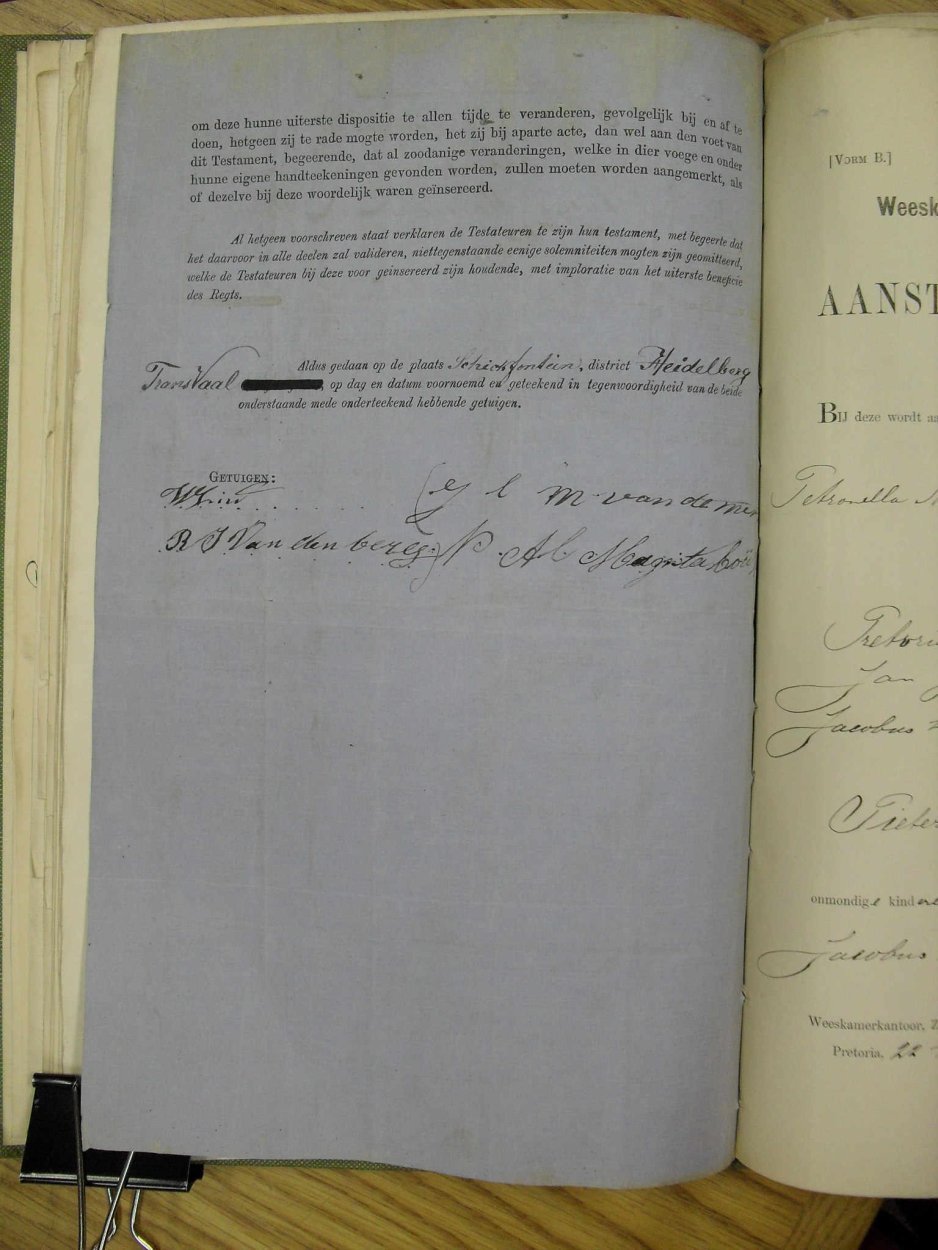 om deze hunne uiterste dispositie te allen tijde te veranderen, gevolgelijk bij en af te
doen, hetgeen zij te rade mogte worden, het zij bij aparte acte, dan wel aan den voet van
dit Testament, begeerende, dat al zoodanige veranderingen, welke in dier voege en onder
hunne eigene handteekeningen gevonden worden, zullen moeten worden aangemerkt, als
of dezelve bij deze woordelijk waren geïnsereerd.
Al hetgeen voorschreven staat verklaren de Testateuren te zijn hun testament, met begeerte dat
het daarvoor in alle deelen zal valideren, niettegenstaande eenige solemniteiten mogten zijn geomitteerd,
welke de Testateuren bij deze voor geinsereerd zijn houdende, met imploratie van het uiterste beneficie
des Regts.
Aldus gedaan op de plaats district Heidelberg
TransVaal , op dag en datum voornoemd en geteekend in tegenwoordigheid van de beide
onderstaande mede onderteekend hebbende getuigen.
GETUIGEN:
M. van de mer
R J Van den berg
[VORM B.]
Weesk
AANST
BIJ deze wordt aa
Petronella
Pretoriu
Jan
Jacobus
Pieter
onmondige kindere
Jacobus
Weeskamerkantoor, Z
Pretoria, 22